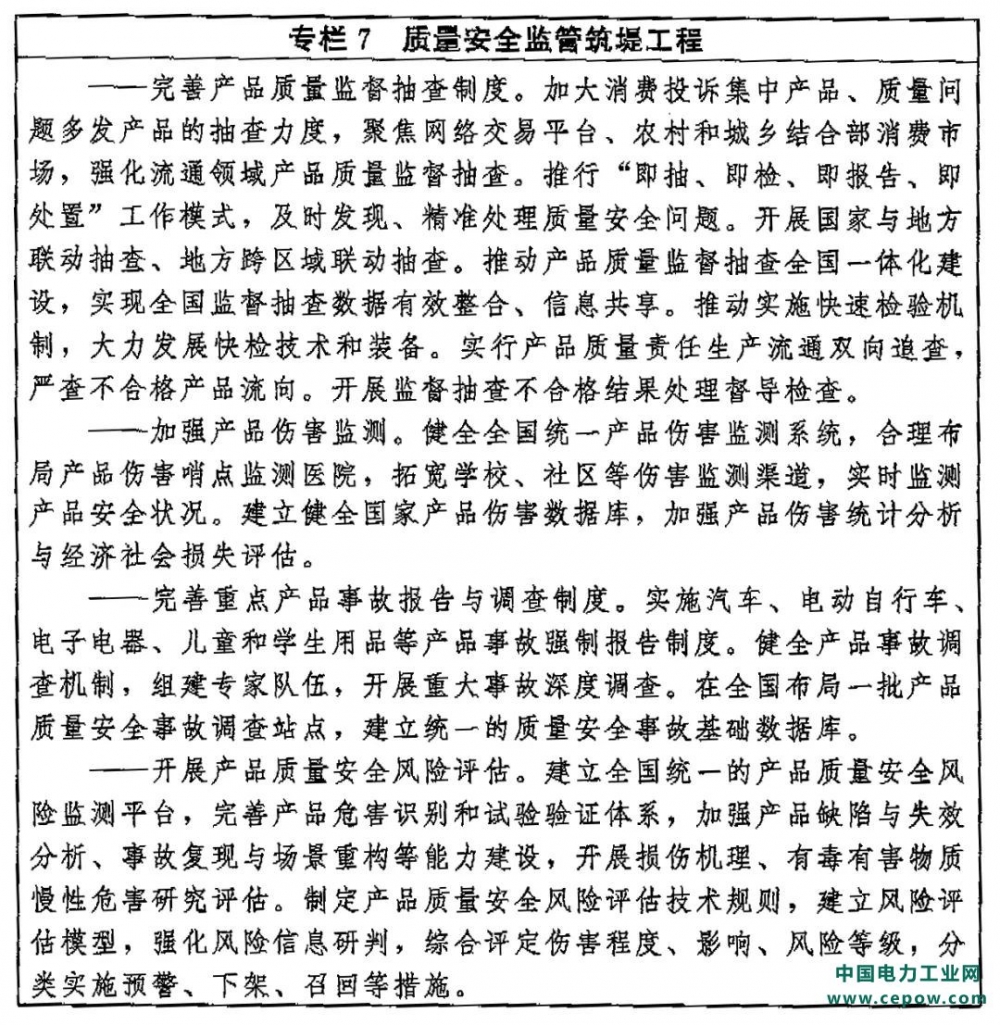 专栏 7 质量安全监管筑堤工程
——完善产品质量监督抽查制度。加大消费投诉集中产品、质量问
题多发产品的抽查力度，聚焦网络交易平台、农村和城乡结合部消费市
场，强化流通领域产品质量监督抽查。推行“即抽、即检、即报告、即
处置”工作模式，及时发现、精准处理质量安全问题。开展国家与地方
联动抽查、地方跨区域联动抽查。推动产品质量监督抽查全国一体化建
设，实现全国监督抽查数据有效整合、信息共享。推动实施快速检验机
制，大力发展快检技术和装备。实行产品质量责任生产流通双向追查，
严查不合格产品流向。开展监督抽查不合格结果处理督导检查。
——加强产品伤害监测。健全全国统一产品伤害监测系统，合理布
局产品伤害哨点监测医院，拓宽学校、社区等伤害监测渠道，实时监测
产品安全状况。建立健全国家产品伤害数据库，加强产品伤害统计分析
与经济社会损失评估。
——完善重点产品事故报告与调查制度。实施汽车、电动自行车、
电子电器、儿童和学生用品等产品事故强制报告制度。健全产品事故调
查机制，组建专家队伍，开展重大事故深度调查。在全国布局一批产品
质量安全事故调查站点，建立统一的质量安全事故基础数据库。
——开展产品质量安全风险评估。建立全国统一的产品质量安全风
险监测平台，完善产品危害识别和试验验证体系，加强产品缺陷与失效
分析、事故复现与场景重构等能力建设，开展损伤机理、有毒有害物质
慢性危害研究评估。制定产品质量安全风险评估技术规则，建立风险评
估模型，强化风险信息研判，综合评定伤害程度、影响、风险等级，分
类实施预警、下架、召回等措施。
中国电力工业网
www.cepow.com